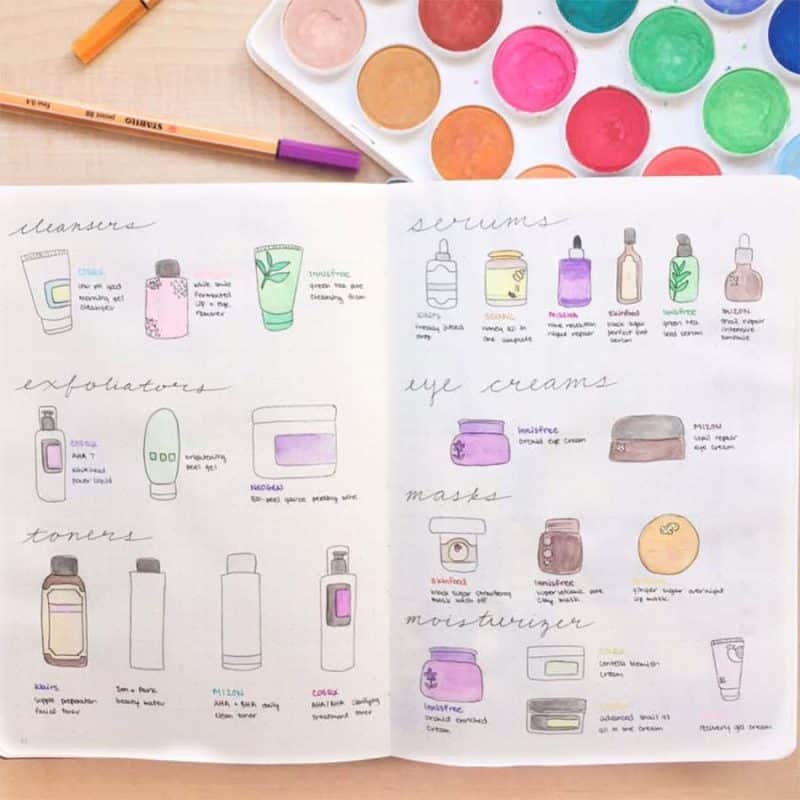 STABILO point 88 fine 0.4
cleansers
COSRX
low pH good
morning gel
cleanser
fermented
lip + eye
remover
innisfree
green tea pure
cleansing foam
exfoliators
COSRX
AHA 7
whitehead
power liquid
brightening
peel gel
NEOGEN
bio-peel gauze peeling wine
toners
Klairs
supple preparation
facial toner
Son + Park
beauty water
MIZON
AHA + BHA daily
clean toner
COSRX
AHA/BHA clarifying
treatment toner
serums
Klairs
freshly juiced
drop
honey all in
one ampoule
MISSHA
time revolution
night repair
Skinfood
black sugar
perfect first
serum
innisfree
green tea
seed serum
MIZON
snail repair
intensive
ampoule
eye creams
innisfree
orchid eye cream
MIZON
snail repair
eye cream
masks
Skinfood
black sugar strawberry
mask wash off
innisfree
super volcanic pore
clay mask
ginger sugar overnight
lip mask
moisturizer
innisfree
orchid enriched
cream
COSRX
centella blemish
cream
advanced snail 92
all in one cream
recovery gel cream